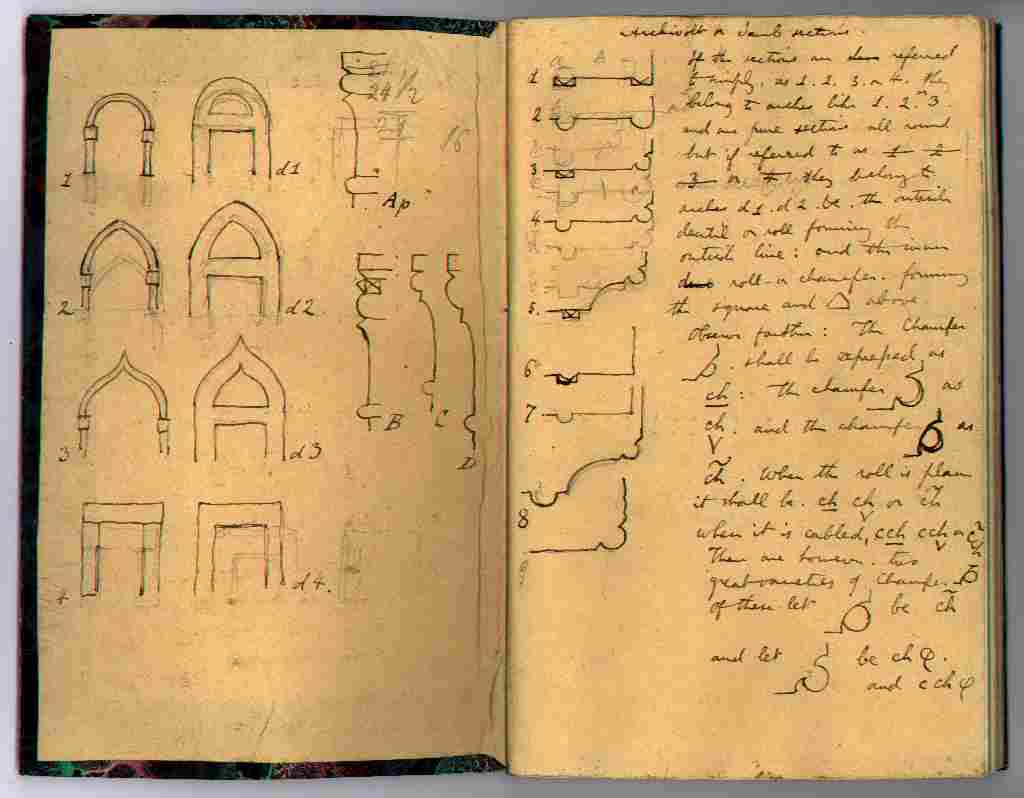 1
d1
24 1/2
16
Ap
2
d2.
3
d3
B
C
D
4
d4.
Archivolt or Jamb sections.
1
2
3
4
5.
6
7
8
9
If the sections are referred
to simply, as 1. 2. 3. or 4. they
belong to arches like 1. 2. 3
and are pure sections all round
but if referred to as 1 2
3 or 4 they belong to
arches d1. d2. &c. the outside
dentil or roll forming the
outside line: and the inner
roll or chamfer. forming
the square and △ above.
Observe farther: The Chamfer
. shall be expressed as
ch: The chamfer as
ch. and the chamfer as
ch. When the roll is plain
it shall be. ch ch or ch
when it is cabled, cch cch or cch
There are however. two
great varieties of Chamfer.
of these let be ch
and let be ch φ.
and cch φ